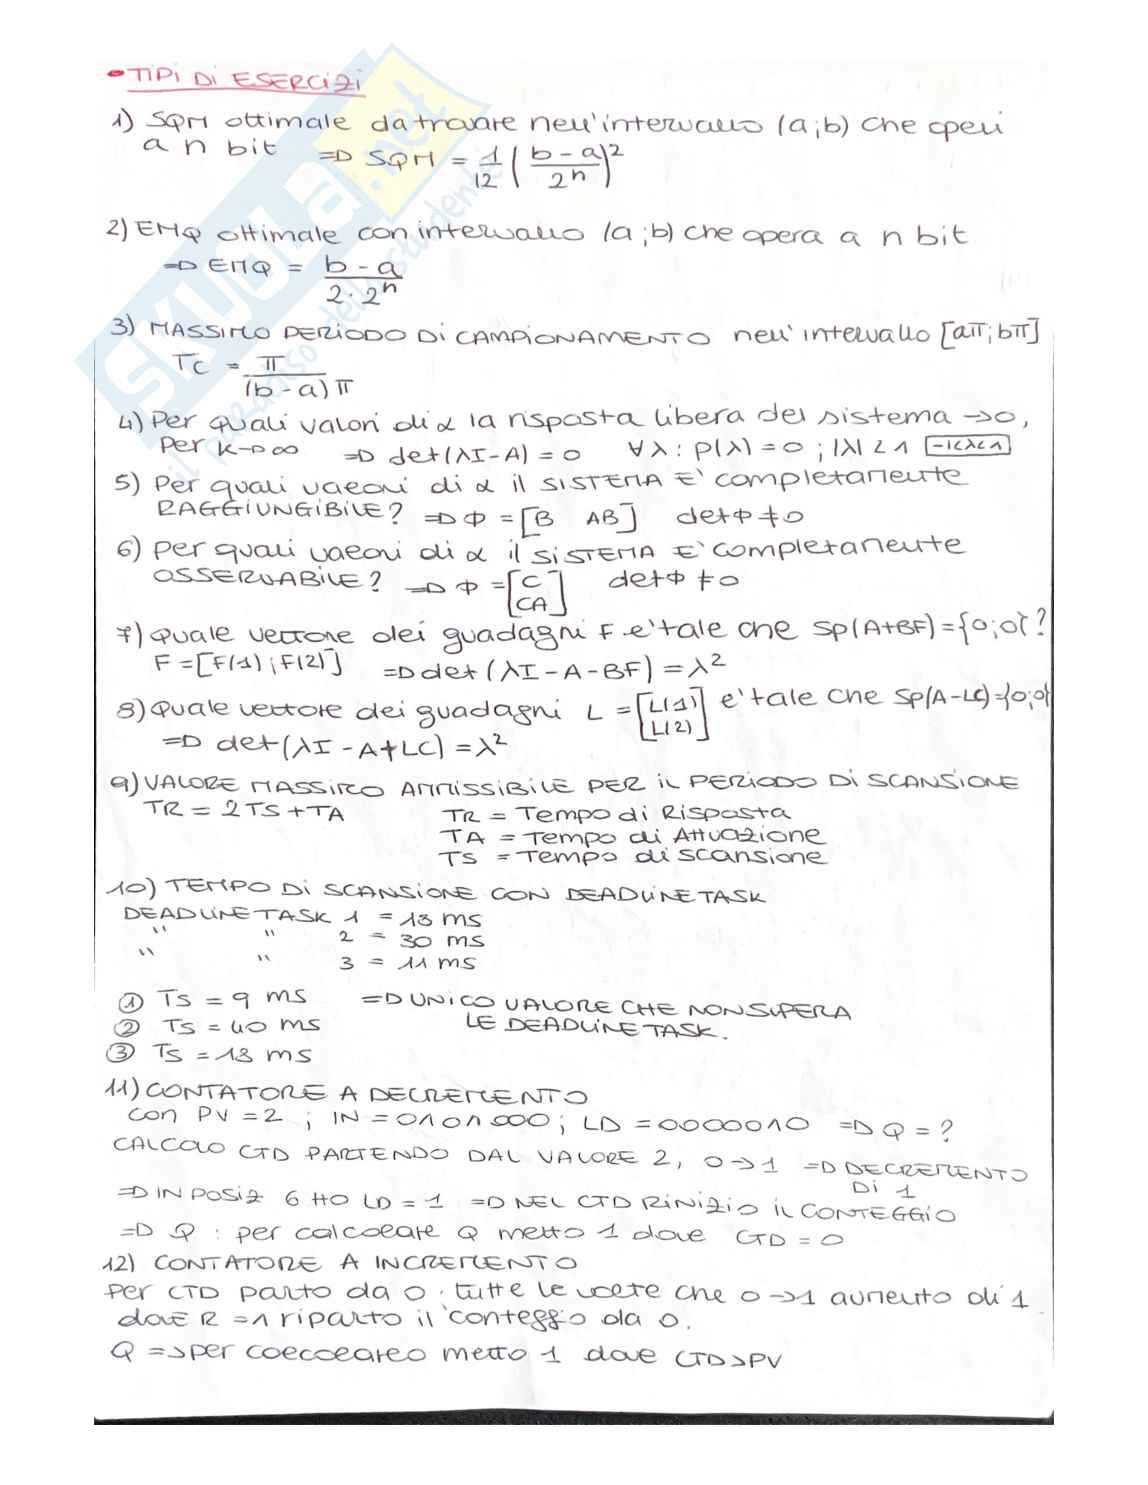 • TIPI DI ESERCIZI
1) SQM ottimale da trovare nell'intervallo (a;b) che operi
a n bit => SQM = 1/12 ( (b-a)/2^n )^2
2) EMQ ottimale con intervallo (a;b) che opera a n bit
=> EMQ = (b-a)/(2·2^n)
3) MASSIMO PERIODO DI CAMPIONAMENTO nell'intervallo [aπ;bπ]
Tc = π/((b-a)π)
4) Per quali valori di α la risposta libera del sistema →0,
Per k→∞ => det(λI-A)=0 ∀λ: p(λ)=0; |λ|<1 -1<λ<1
5) Per quali valori di α il SISTEMA E' completamente
RAGGIUNGIBILE? => Φ = [B AB] detΦ≠0
6) Per quali valori di α il SISTEMA E' completamente
OSSERVABILE? => Φ = [C CA] detΦ≠0
7) Quale vettore dei guadagni F e' tale che Sp(A+BF)={0;0}?
F=[F(1);F(2)] => det(λI-A-BF)=λ²
8) Quale vettore dei guadagni L = [L(1) L(2)] e' tale che Sp(A-LC)={0;0}
=> det(λI-A+LC)=λ²
9) VALORE MASSIMO AMMISSIBILE PER IL PERIODO DI SCANSIONE
TR = 2TS+TA TR = Tempo di Risposta
TA = Tempo di Attuazione
TS = Tempo di scansione
10) TEMPO DI SCANSIONE CON DEADLINE TASK
DEADLINE TASK 1 = 18 ms
" " 2 = 30 ms
" " 3 = 11 ms
① Ts = 9 ms => UNICO VALORE CHE NON SUPERA
② Ts = 40 ms LE DEADLINE TASK.
③ Ts = 18 ms
11) CONTATORE A DECREMENTO
con PV=2; IN=0101000; LD=0000010 => Q=?
CALCOLO CTD PARTENDO DAL VALORE 2, 0→1 => DECREMENTO
DI 1
=> IN POSIZ 6 HO LD=1 => NEL CTD RINIZIO IL CONTEGGIO
=> Q: per calcolare Q metto 1 dove CTD=0
12) CONTATORE A INCREMENTO
Per CTD parto da 0. tutte le volte che 0→1 aumento di 1
dove R=1 riparto il conteggio da 0.
Q => per calcolarlo metto 1 dove CTD>PV
SKUOLA.net
il paradiso dello studente